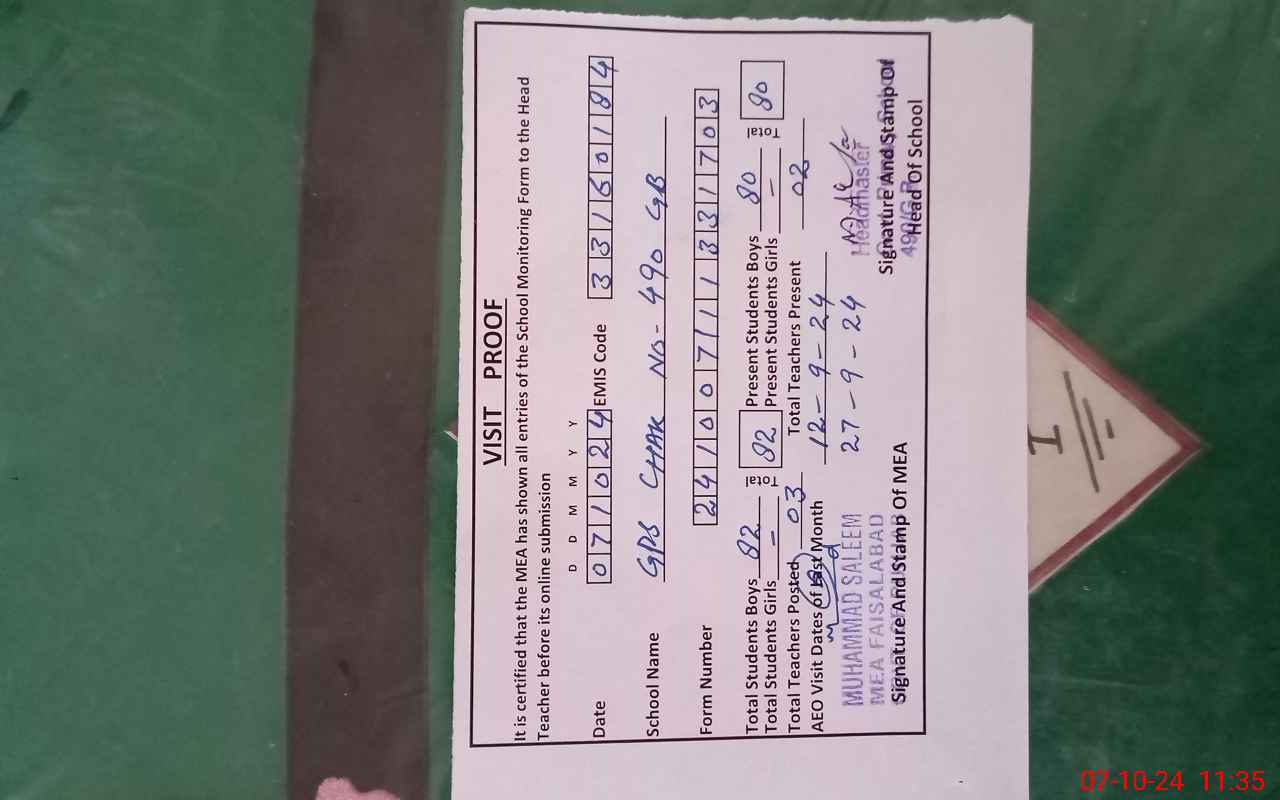 VISIT PROOF
It is certified that the MEA has shown all entries of the School Monitoring Form to the Head
Teacher before its online submission
D D M M Y Y
Date 071024 EMIS Code 33160184
School Name GPS CHAK NO- 490 GB
Form Number 24100711331703
Total Students Boys 82 Total 82 Present Students Boys 80 Total 80
Total Students Girls – Present Students Girls –
Total Teachers Posted 03 Total Teachers Present 02
AEO Visit Dates of Last Month 12-9-24
27-9-24
MUHAMMAD SALEEM
MEA FAISALABAD
Headmaster
Signature And Stamp Of MEA
Signature And Stamp Of
490/G.B
Head Of School
07-10-24 11:35